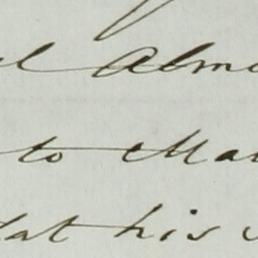 l Alm
to Ma
at his